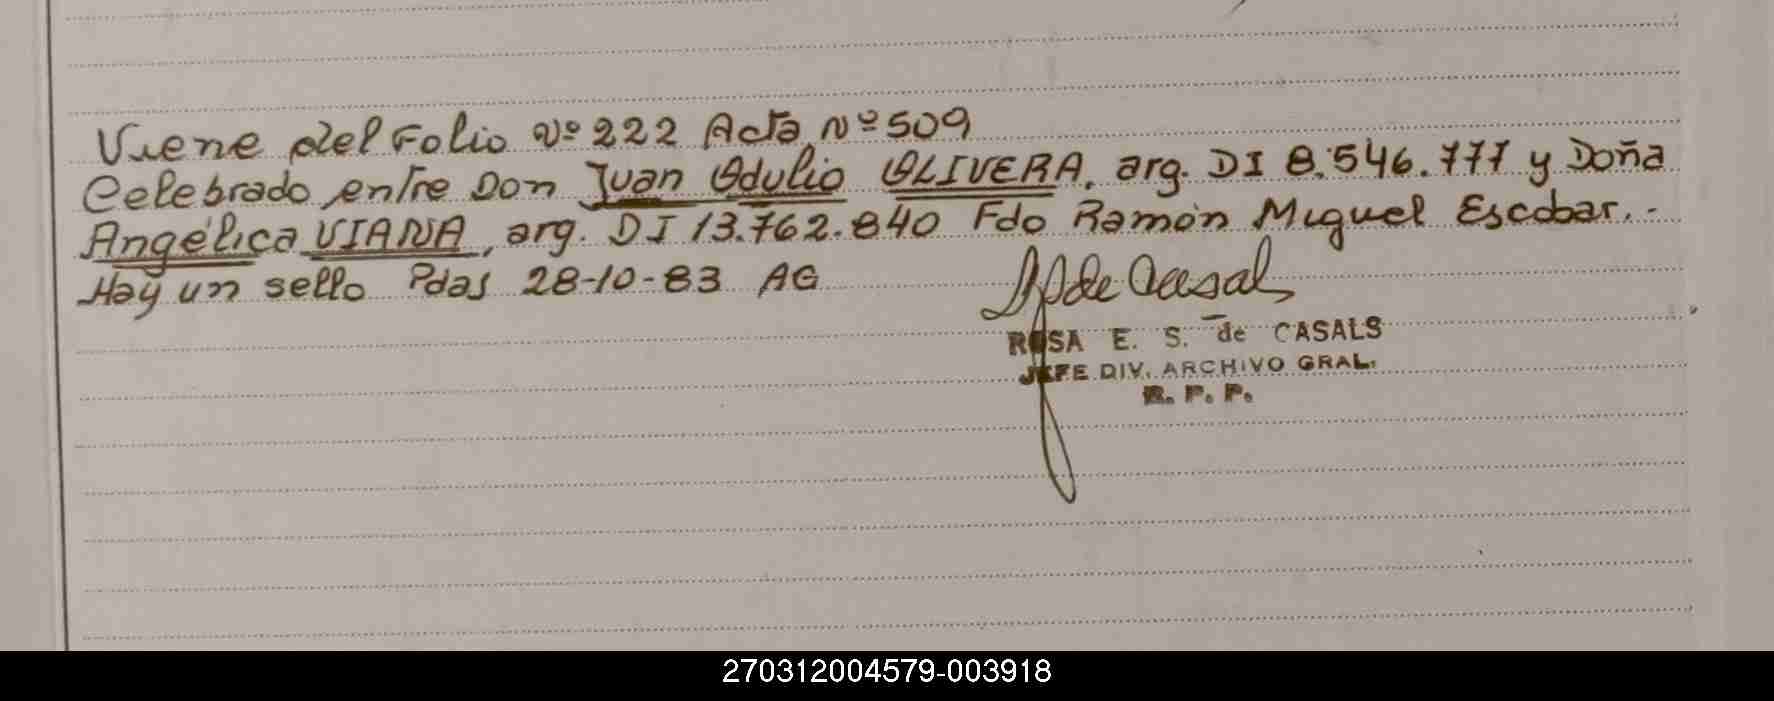 Viene del Folio Nº 222 Acta Nº 509
Celebrado entre Don Juan Odulio OLIVERA, arg. DI 8.546.777 y Doña
Angélica VIANA, arg. DI 13.762.840 Fdo Ramón Miguel Escobar.-
Hay un sello Pdas 28-10-83 AG
de Casals
ROSA E. S. de CASALS
JEFE DIV. ARCHIVO GRAL.
R. P. P.
270312004579-003918